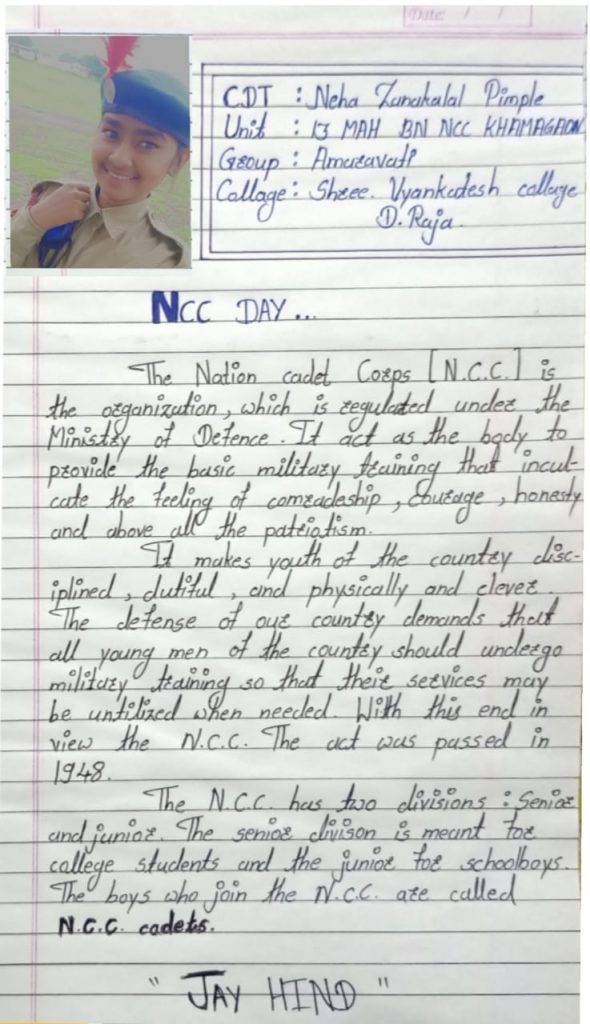 Date: / /
CDT : Neha Zanakalal Pimple
Unit : 13 MAH BN NCC KHAMAGAON
Group : Amaravati
Collage : Shree. Vyankatesh collage
D. Raja.
NCC DAY...
The Nation cadet Corps [N.C.C.] is
the organization, which is regulated under the
Ministry of Defence. It act as the body to
provide the basic military training that incul-
cate the feeling of comradeship, courage, honesty
and above all the patriotism.
It makes youth of the country disc-
iplined, dutiful, and physically and clever.
The defense of our country demands that
all young men of the country should undergo
military training so that their services may
be untilized when needed. With this end in
view the N.C.C. The act was passed in
1948.
The N.C.C. has two divisions : Senior
and junior. The senior divison is meant for
college students and the junior for schoolboys.
The boys who join the N.C.C. are called
N.C.C. cadets.
" JAY HIND "